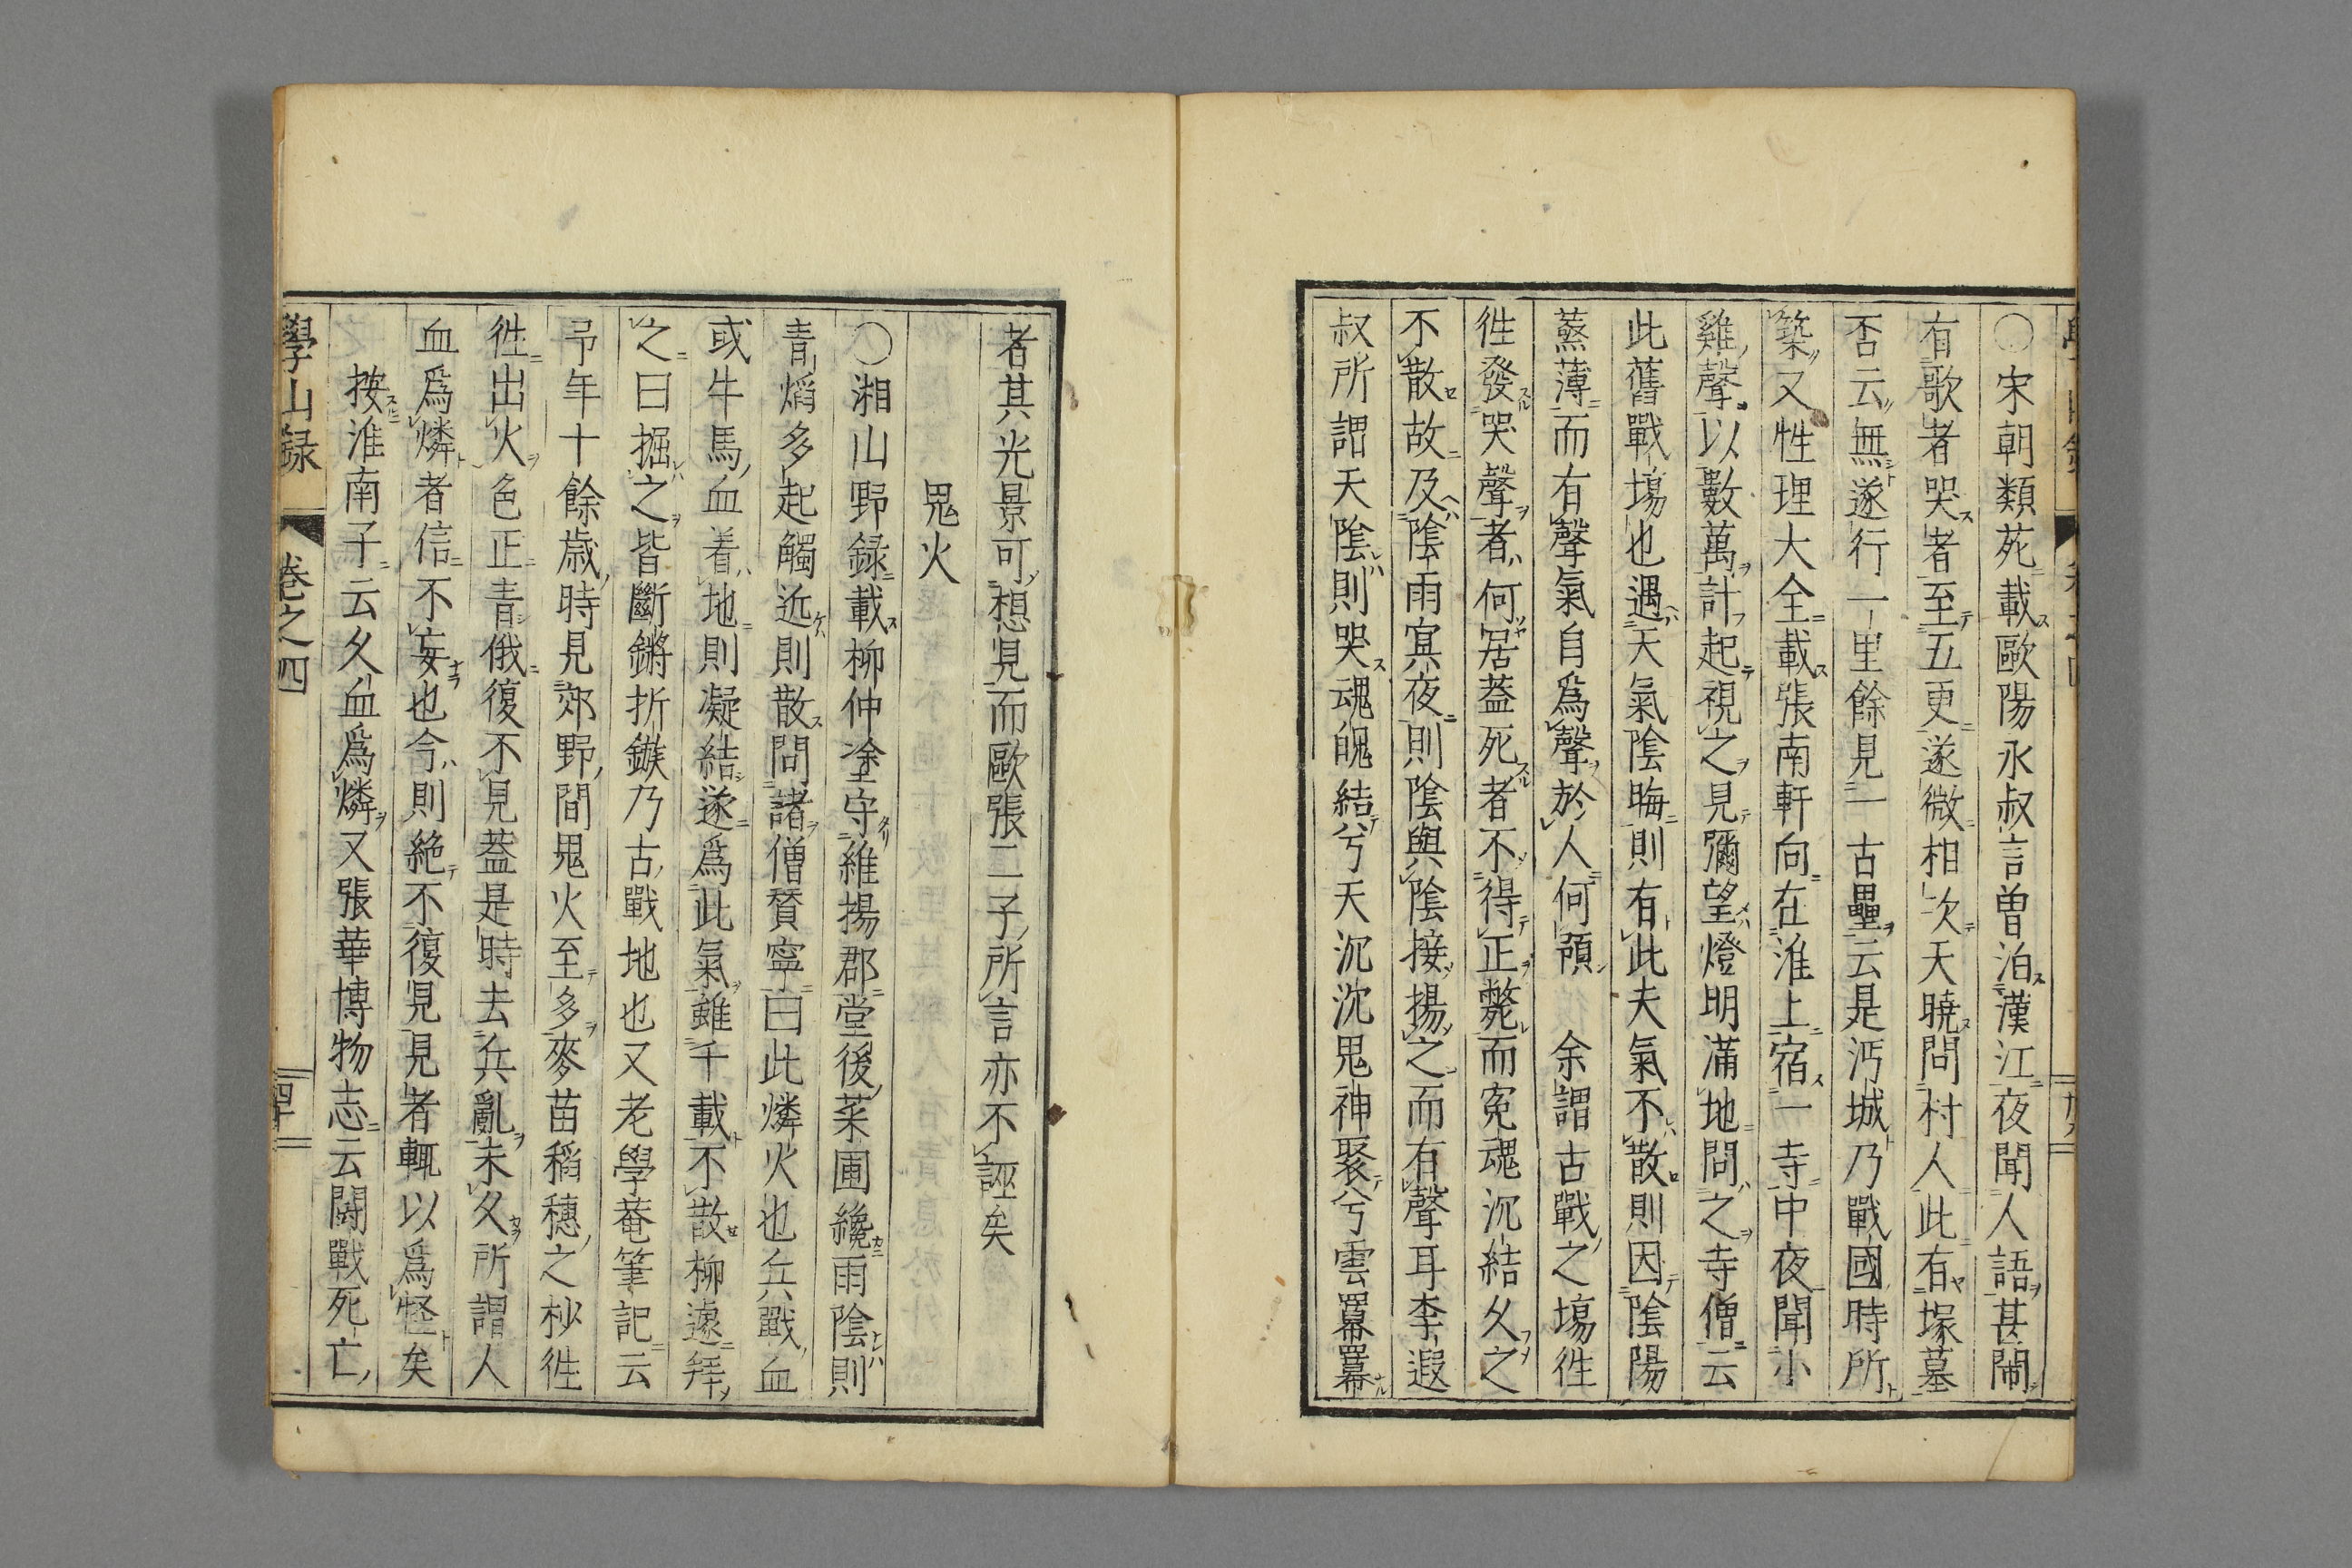 〇宋朝類苑載歐陽永叔言曽泊漢江夜聞人語甚鬧
有歌者哭者至五更遂微相次天曉問村人此有塚墓
否云無遂行一里餘見一古壘云是沔城乃戰國時所
築又性理大全載張南軒向在淮上宿一寺中夜聞小
雞聲以數萬計起視之見彌望燈明滿地問之寺僧云
此舊戰塲也遇天氣陰晦則有此夫氣不散則因陰陽
蒸薄而有聲氣自爲聲於人何預 余謂古戰之塲徃
徃發哭聲者何居蓋死者不得正斃而寃魂沉結久之
不散故及陰雨冥夜則陰與陰接揚之而有聲耳李遐
叔所謂天陰則哭魂魄結兮天沉沈鬼神聚兮雲羃羃
者其光景可想見而歐張二子所言亦不誣矣
鬼火
〇湘山野録載柳仲塗守維揚郡堂後菜圃纔雨陰則
青熖多起觸近則散問諸僧賛寧曰此燐火也兵戰血
或牛馬血着地則凝結遂爲此氣雖千載不散柳遠拜
之曰掘之皆斷鏘折鏃乃古戰地也又老學菴筆記云
予年十餘歳時見郊野間鬼火至多麥苗稻穗之杪徃
徃出火色正青俄復不見蓋是時去兵亂未久所謂人
血爲燐者信不妄也今則絶不復見見者輒以爲怪矣
按淮南子云久血爲燐又張華博物志云鬪戰死亡
學山録 卷之四 四十